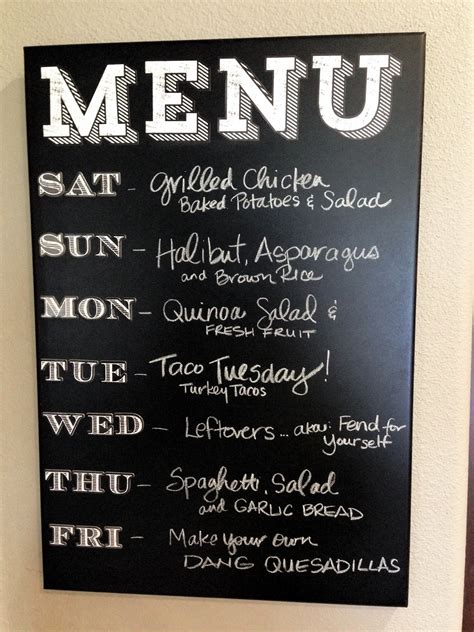 MENU
SAT - Grilled Chicken
Baked Potatoes & Salad
SUN - Halibut, Asparagus
and Brown Rice
MON - Quinoa Salad &
FRESH FRUIT
TUE - Taco Tuesday!
Turkey Tacos
WED - Leftovers... aka: Fend for
Yourself
THU - Spaghetti, Salad
and GARLIC BREAD
FRI - Make your own
DANG QUESADILLAS